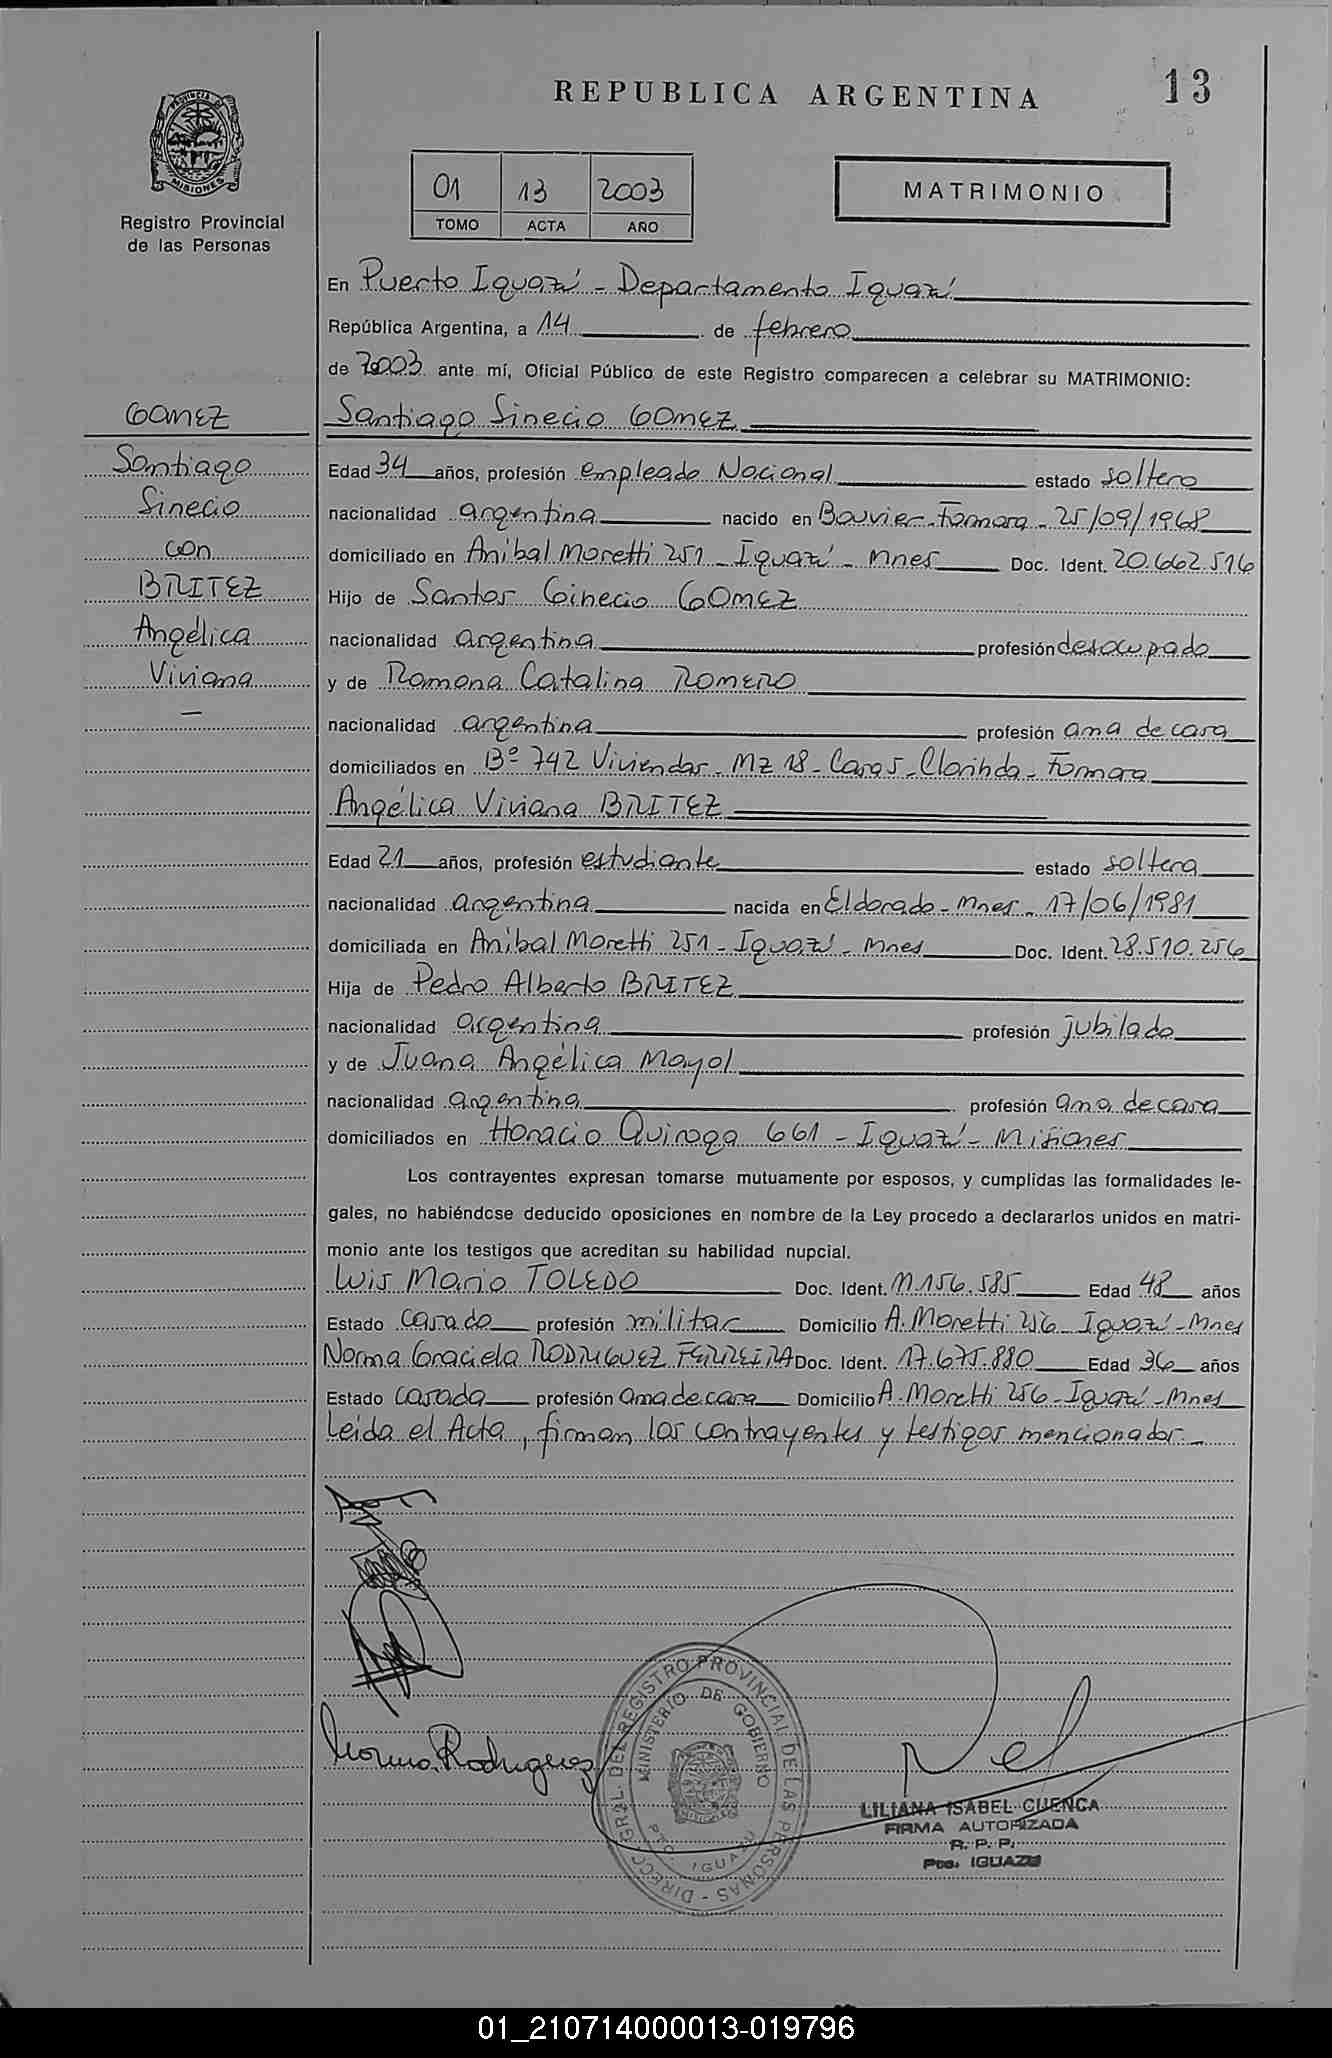 REPUBLICA ARGENTINA
13
PROVINCIA DE
MISIONES
Registro Provincial
de las Personas
01 13 2003
TOMO ACTA AÑO
MATRIMONIO
En Puerto Iguazú - Departamento Iguazú
República Argentina, a 14 de febrero
de 2003 ante mí, Oficial Público de este Registro comparecen a celebrar su MATRIMONIO:
GOMEZ
Santiago
Sinecio
con
BRITEZ
Angélica
Viviana
Santiago Sinecio GOMEZ
Edad 34 años, profesión empleado Nacional estado soltero
nacionalidad argentina nacido en Bouvier - Formosa - 25/09/1968
domiciliado en Anibal Moretti 251 - Iguazú - Mnes Doc. Ident. 20.662.516
Hijo de Santos Ginecio GOMEZ
nacionalidad argentina profesión desocupado
y de Ramona Catalina ROMERO
nacionalidad argentina profesión ama de casa
domiciliados en Bº 742 Viviendas - MZ 18 - Casa 5 - Clorinda - Formosa
Angélica Viviana BRITEZ
Edad 21 años, profesión estudiante estado soltera
nacionalidad argentina nacida en Eldorado - Mnes - 17/06/1981
domiciliada en Anibal Moretti 251 - Iguazú - Mnes Doc. Ident. 28.510.256
Hija de Pedro Alberto BRITEZ
nacionalidad argentina profesión jubilado
y de Juana Angélica Mayol
nacionalidad argentina profesión ama de casa
domiciliados en Horacio Quiroga 661 - Iguazú - Misiones
Los contrayentes expresan tomarse mutuamente por esposos, y cumplidas las formalidades le-
gales, no habiéndose deducido oposiciones en nombre de la Ley procedo a declararlos unidos en matri-
monio ante los testigos que acreditan su habilidad nupcial.
Luis Mario TOLEDO Doc. Ident. 11.156.585 Edad 48 años
Estado casado profesión militar Domicilio A. Moretti 256 - Iguazú - Mnes
Norma Graciela RODRIGUEZ FERREIRA Doc. Ident. 17.675.880 Edad 36 años
Estado casada profesión ama de casa Domicilio A. Moretti 256 - Iguazú - Mnes
Leída el Acta, firman los contrayentes y testigos mencionados. -
Norma Rodriguez
DIRECC. GRAL. DEL REGISTRO PROVINCIAL DE LAS PERSONAS -
MINISTERIO DE GOBIERNO
PTO. IGUAZU
LILIANA ISABEL CUENCA
FIRMA AUTORIZADA
R. P. P.
Pto. IGUAZU
01_210714000013-019796